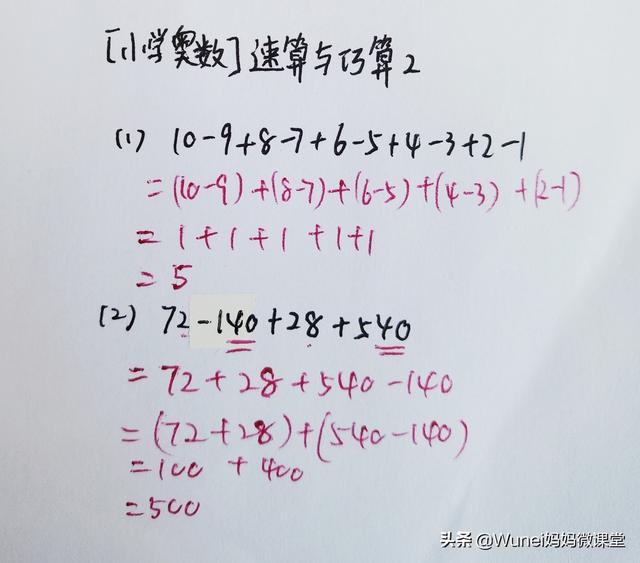 [小学奥数]速算与巧算2
(1) 10-9+8-7+6-5+4-3+2-1
=(10-9)+(8-7)+(6-5)+(4-3)+(2-1)
=1+1+1+1+1
=5
(2) 72-140+28+540
=72+28+540-140
=(72+28)+(540-140)
=100+400
=500
头条 @Wunei妈妈微课堂